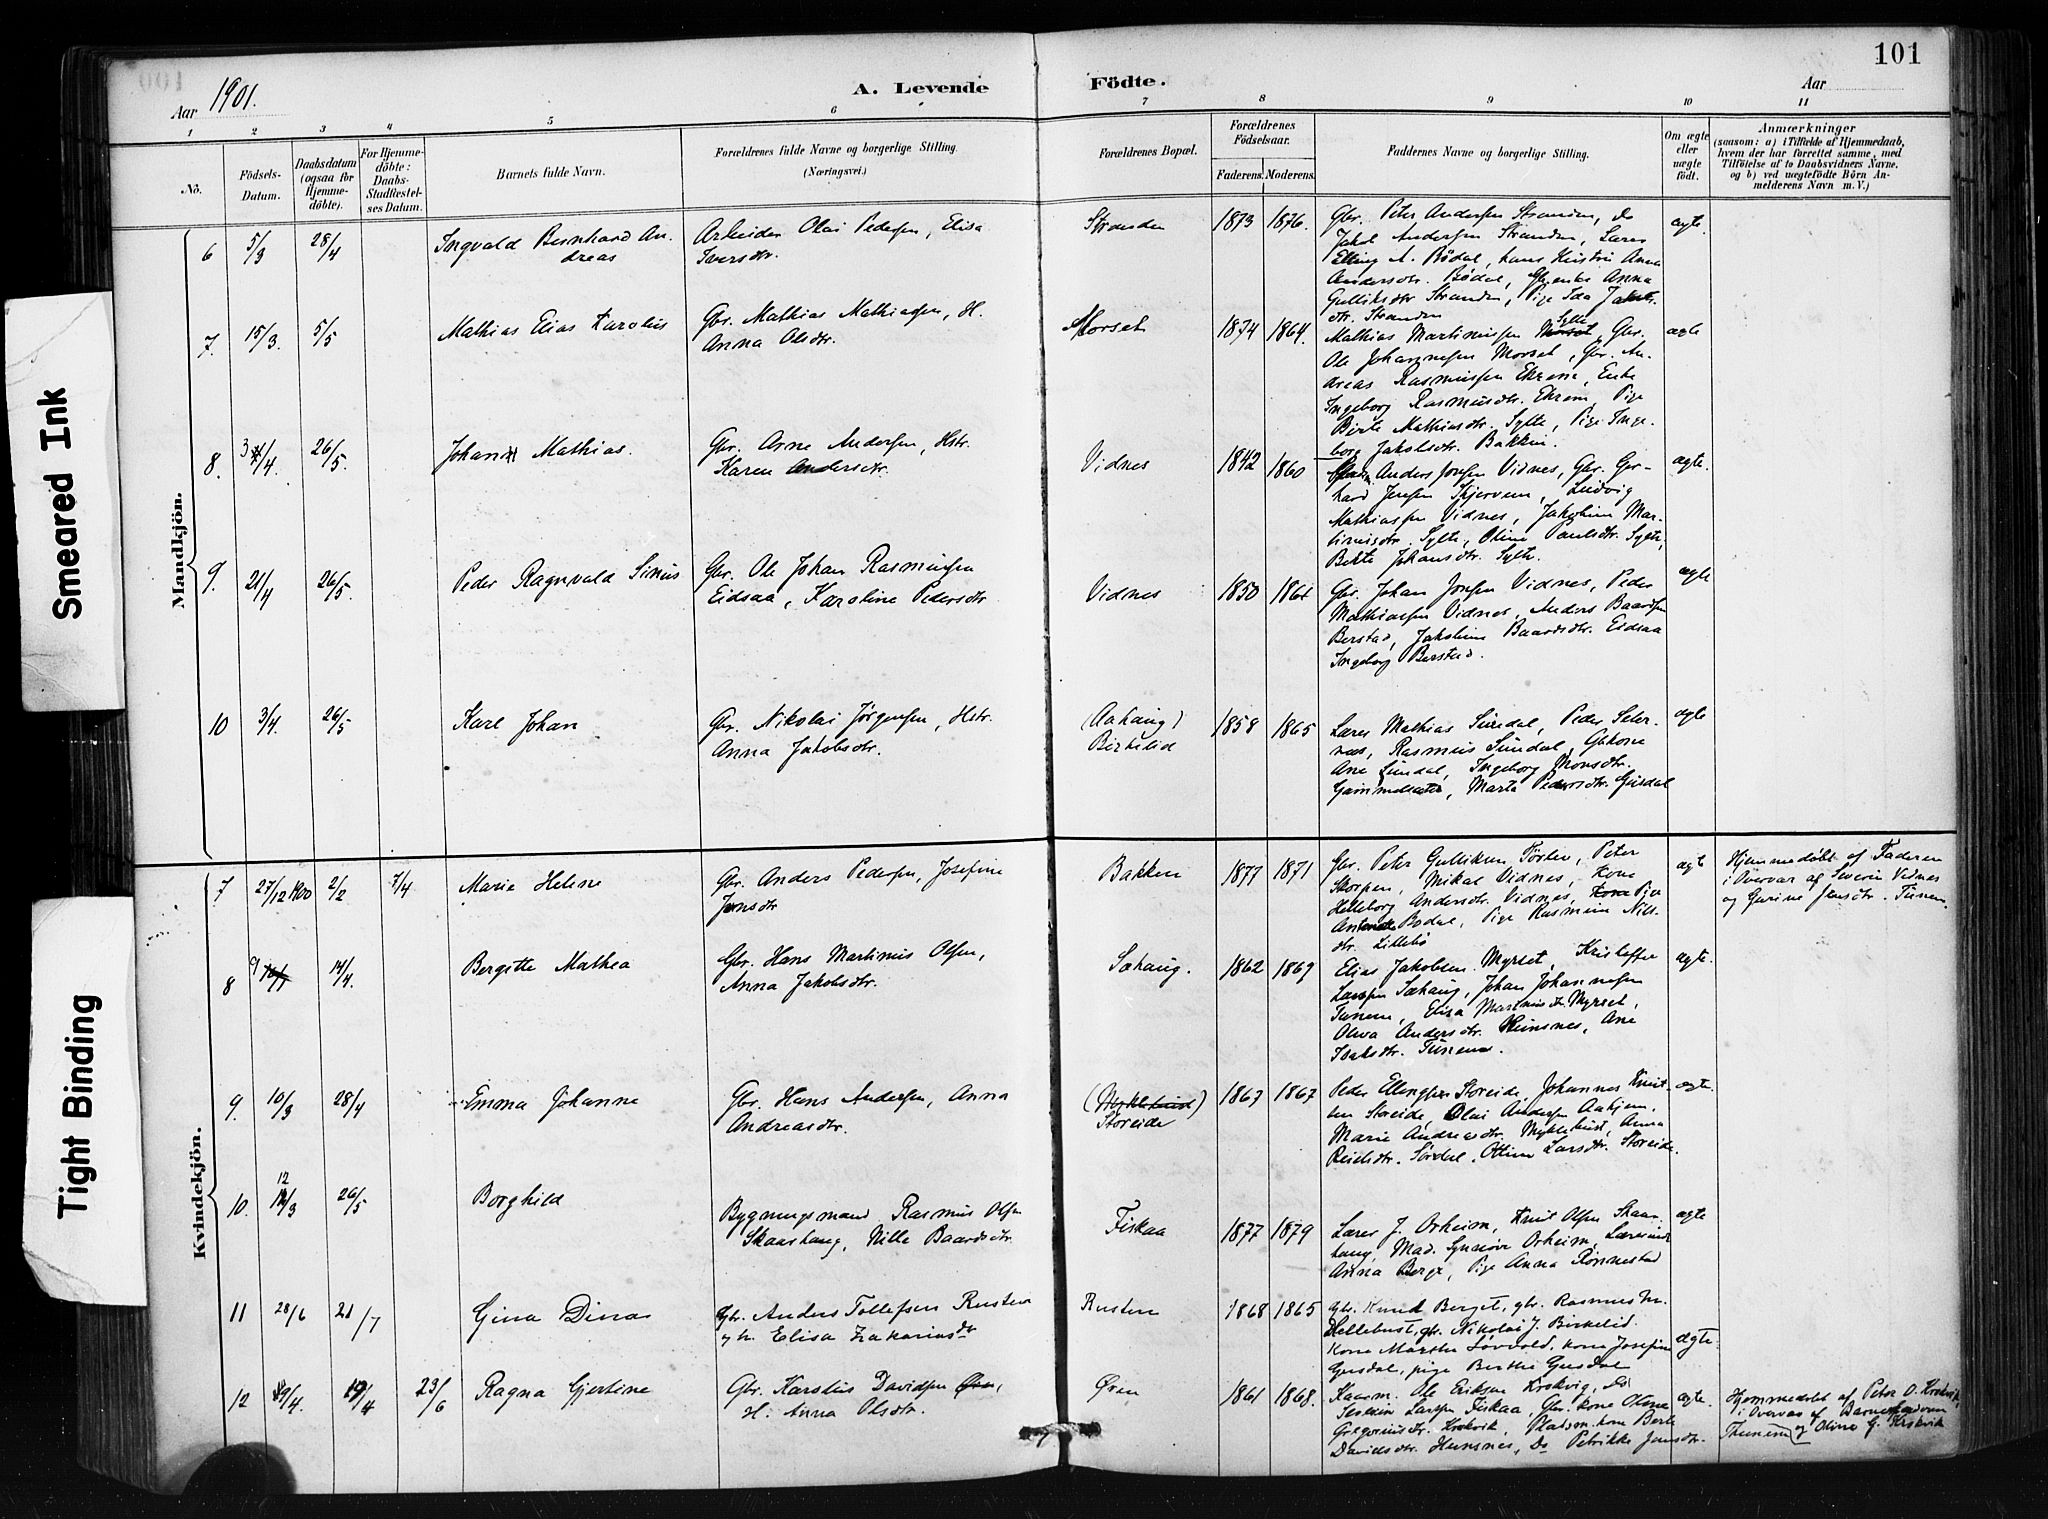 101
Aar 1901.
A. Levende
Födte.
Aar
1 2 3 4 5 6 7 8 9 10 11
No.
Födsels-
Datum.
Daabsdatum
(ogsaa for
Hjemme-
döbte).
For Hjemme-
döbte:
Daabs-
Stadfæstel-
ses Datum.
Barnets fulde Navn.
Forældrenes fulde Navne og borgerlige Stilling.
(Næringsvei.)
Forældrenes Bopæl.
Forældrenes
Födselsaar.
Faderens. Moderens.
Faddernes Navne og borgerlige Stilling.
Om ægte
eller
uægte
födt.
Anmærkninger
(saasom: a) i Tilfælde af Hjemmedaab,
hvem der har forrettet samme, med
Tilföielse af to Daabsvidners Navne.
og b) ved uægtefödte Börn An-
melderens Navn m. V.)
Smeared Ink
Tight Binding
Mandkjön.
6 5/3 28/4 Ingvald Bernhard An-
dreas
Arbeider Olai Pedersen, Elisa
Iversdtr.
Stranden 1873 1876.
Gbr. Peter Andersen Stranden, Do
Jakob Andersen Stranden, Lærer
Elling A. Bødal, hans Hustru Anna
Andersdtr. Bødal, Anna
Gulliksdtr Stranden, Pige Ida Jakobs-
dtr. Stranden
ægte.
7. 15/3. 5/5 Mathias Elias Karolus
Gbr. Mathias Mathiassen, H.
Anna Olsdtr.
Morset 1874 1864.
Mathias Martinussen Sylte, Gbr.
Ole Johannesen Morset, Gbr. An-
dreas Rasmussen Ekrem, Enke
Ingeborg Rasmusdtr. Ekrem, Pige
Berte Mathiasdtr. Sylte, Pige Inge-
borg Jakobsdtr. Bakken.
ægte
8. 3/4. 26/5. Johan Mathias.
Gbr. Arne Andersen, Hstr.
Karen Andersdtr.
Vidnes 1842 1860
Anders Josefsen Vidnes, Gbr. Ger-
hard Jensen Skjervem, Ludvig
Mathiassen Vidnes, Jakobine Mar-
tinusdtr. Sylte, Oline Paulsdtr. Sylte,
Berte Johansdtr. Sylte.
ægte.
9. 21/4 26/5. Peder Ragnvald Sinius
Gbr. Ole Johan Rasmussen
Eidsaa, Karoline Pedersdtr
Vidnes 1850 1861
Gbr. Johan Josefsen Vidnes, Peder
Mathiassen Vidnes, Anders Baardsen
Berstad, Jakobine Baardsdtr. Eidsaa
Ingeborg Berstad.
ægte
10 3/4. 26/5 Karl Johan
Gbr. Nikolai Jørgensen, Hstr.
Anna Jakobsdtr.
(Aahaug)
Birkelid
1858 1865
Lærer Mathias Sundal, Peder Seter-
næs, Rasmus Sundal, Gbkone
Ane Sundal, Ingeborg Monsdtr.
Gammelsæter, Marta Pedersdtr. Gusdal
ægte
Kvindekjön.
7 27/12 1900 2/2 7/4 Marie Helene
Gbr. Anders Pedersen, Josefine
Jensdtr
Bakken 1877 1871
Gbr. Peter Gulliksen Tørlen, Peter
Skorpen, Mikal Vidnes, Kone
Helleborg Andersdtr. Vidnes, Kone Pige
Antonette Bødal, Pige Rasmine Nils-
dtr. Lillebø
ægte
Hjemmedøbt af Faderen
i Overvær af Severin Vidnes
og Gurine Jensdtr. Tunem
8 9/1 14/4. Bergitte Mathea
Gbr. Hans Martinus Olsen,
Anna Jakobsdtr.
Sæhaug. 1862 1869
Elias Jakobsen Myrset, Kristoffer
Larssen Sæhaug, Johan Johannesen
Tunem, Elisa Martinusdtr Myrset,
Oliva Andersdtr. Hunsnes, Ane
Isaksdtr. Tunem.
ægte.
9. 10/3 28/4 Emma Johanne
Gbr. Hans Andersen, Anna
Andreasdtr.
(Myklebust)
Storeide
1863 1867
Peder Ellingsen Storeide, Johannes Knut-
sen Storeide, Olai Andersen Aahjem,
Marie Andreasdtr. Myklebust, Anna
Reielsdtr. Sørdal, Oline Larsdtr. Storeide.
ægte
10. 12
12/3 26/5 Borghild
Bygningsmand Rasmus Olsen
Skaarhaug, Nille Baardsdtr.
Fiskaa 1877 1879
Lærer J. Orheim, Knut Olsen Skaar-
haug, Mad. Synnøve Orheim, Lærerinde
Anna Berge, Pige Anna Rønnestad
ægte
11 28/6 21/7 Gina Dina
Gbr. Anders Tollefsen Rusten
og h. Elisa Zakariasdtr
Rusten 1868 1865
Gbr. Knud Berget, gbr. Rasmus M.
Hellebust, gbr. Nikolai J. Birkelid.
Kone Marthe Løvold, kone Josefine
Gusdal, pige Berthe Gusdal
ægte.
12 19/4. 19/4 23/6 Ragna Gjertine
Gbr. Karolus Davidsen Øren,
H. Anna Olsdtr.
Øren 1861 1868.
Kaarm. Ole Eriksen Krokvig, Do
Severin Larssen Fiskaa, Gbr. kone Oline
Gregoriusdtr. Krokvik, Pladsm. kone Berte
Davidsdtr. Hunsnes, Do Petrikke Jonsdtr.
ægte.
Hjemmedøbt af Peter O. Krokvik
i Overvær af
Thunem og Oline G. Krokvik